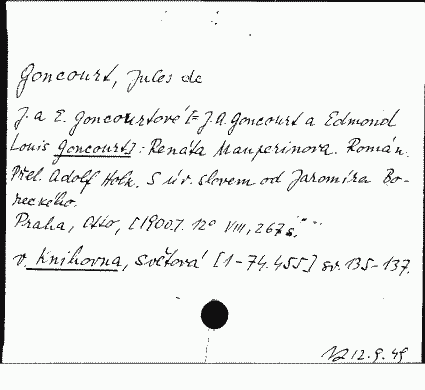 Goncourt, Jules de
J. a E. Goncourtové [= J. A. Goncourt a Edmond
Louis Goncourt]: Renáta Mauperinova. Román.
Přel. Adolf Holk. S úv. slovem od Jaromíra Bo-
reckého.
Praha, Otto, [1900]. 12° VIII, 267 s.
v. Knihovna, světová [1-74.455] sv. 135-137.
12.9.49